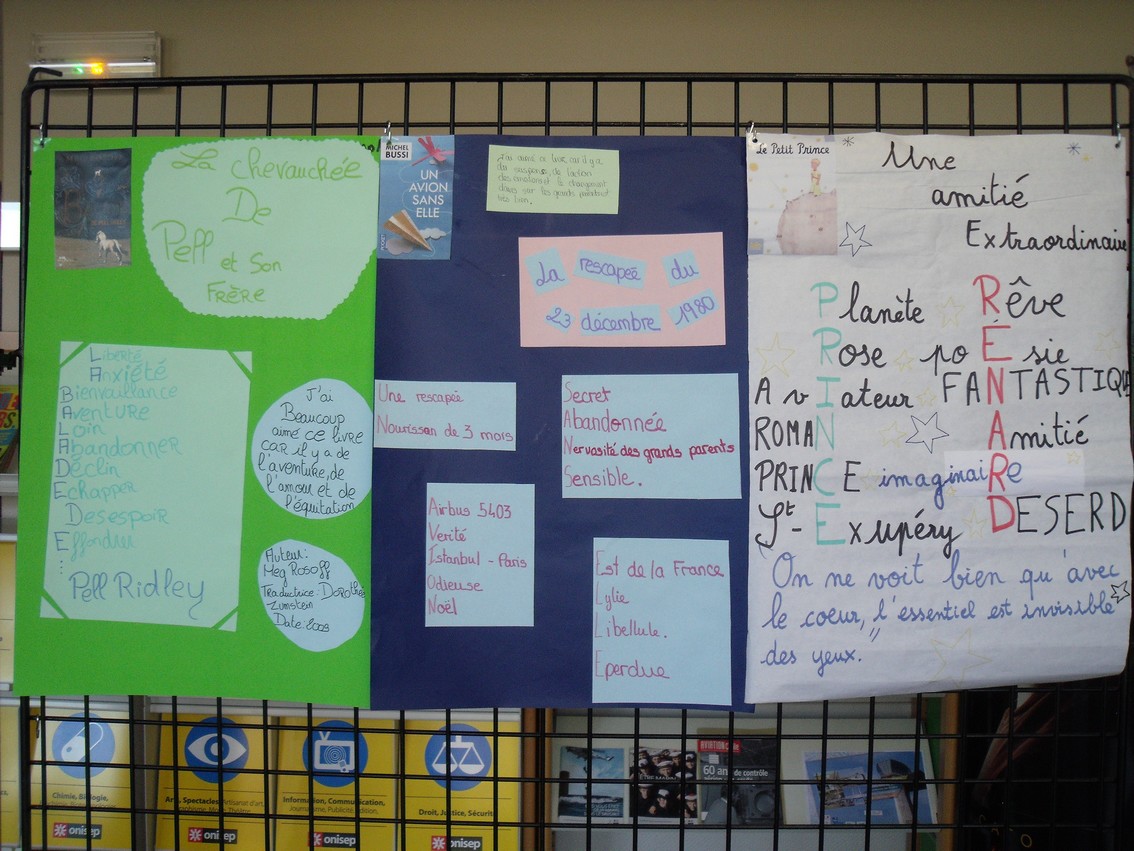 La Chevauchée
De
Pell et Son
Frère
Liberté
Anxiété
Bienvaillance
Aventure
Loin
Abandonner
Déclin
Echapper
Desespoir
Effondrer
...
Pell Ridley
J'ai
Beaucoup
aimé ce livre
car il y a de
l'aventure, de
l'amour et de
l'équitation
Auteur:
Meg Rosoff
Traductrice: Dorothée
Zumstein
Date:
MICHEL
BUSSI
UN
AVION
SANS
ELLE
J'ai aimé ce livre car il y a
du suspense, de l'action
des et le changement
dans sur les grands parents et
très bien.
La rescapée du
23 décembre 1980
Une rescapée
Nourisson de 3 mois
Secret
Abandonnée
Nervasité des grands parents
Sensible.
Airbus 5403
Verité
Istanbul - Paris
Odieuse
Noël
Est de la France
Lylie
Libellule.
Eperdue
Le Petit Prince
Une
amitié
Extraordinaire
Planète
Rose
Aviateur
ROMAN
PRINCE
St-Exupéry
Rêve
poÉsie
FANTASTIQUE
Amitié
imaginaiRe
DESERD
"On ne voit bien qu'avec
le coeur, l'essentiel est invisible
des yeux."
Chimie, Biologie,
onisep
Arts, Spectacles Artisanat d'art,
onisep
Information, Communication,
Journalisme, Publicité, Edition,
onisep
Droit, Justice, Sécurité
onisep
AVIATION
60 ans de contrôle